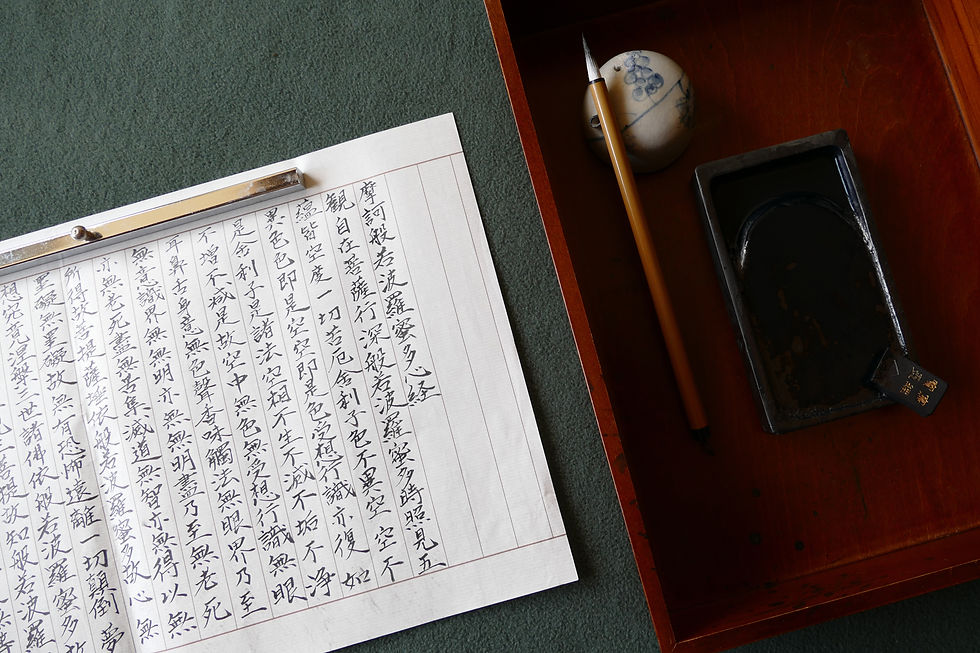 摩訶般若波羅蜜多心経
観自在菩薩行深般若波羅蜜多時照見五
蘊皆空度一切苦厄舎利子色不異空空不
異色色即是空空即是色受想行識亦復如
是舎利子是諸法空相不生不滅不垢不浄
不増不減是故空中無色無受想行識無眼
耳鼻舌身意無色聲香味觸法無眼界乃至
無意識界無無明亦無無明盡乃至無老死
亦無老死盡無苦集滅道無智亦無得以無
所得故菩提薩埵依般若波羅蜜多故心無
罣礙無罣礙故無有恐怖遠離一切顛倒夢
想究竟涅槃三世諸佛依般若波羅蜜多故
菩提故知般若波羅
無等